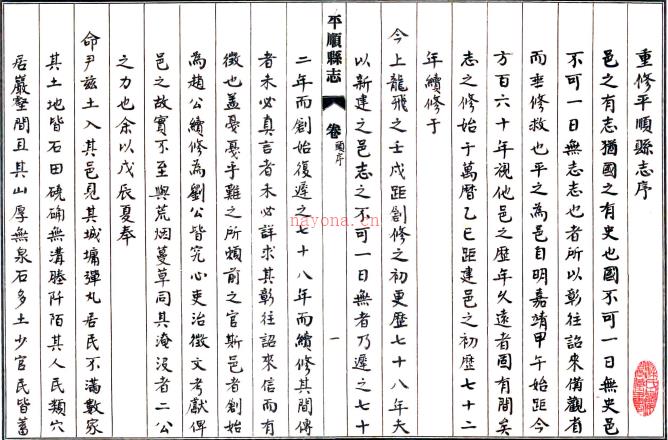 重修平順縣志序
邑之有志猶國之有史也國不可一日無史邑
不可一日無志志也者所以彰往詔來備觀省
而垂修救也平之為邑自明嘉靖甲午始距今
方百六十年視他邑之歷年久遠者固有間矣
志之修始于萬曆乙巳距建邑之初歷七十二
年續修于
今上龍飛之壬戌距創修之初更歷七十八年夫
以新建之邑志之不可一日無者乃遲之七十
平順縣志
卷
序
一
二年而創始復遲之七十八年而續修其間傳
者未必真言者未必詳求其彰往詔來信而有
徵也蓋憂憂乎難之所頼前之官斯邑者創始
為趙公續修為劉公皆究心吏治徵文考獻俾
邑之故實不至與荒烟蔓草同其淹沒者二公
之力也余以戊辰夏奉
命尹兹土入其邑見其城墉彈丸居民不滿數家
其土地皆石田磽确無溝塍阡陌其人民類穴
居巖壑間且其山厚無泉石多土少官民皆蓄
nayona.cn